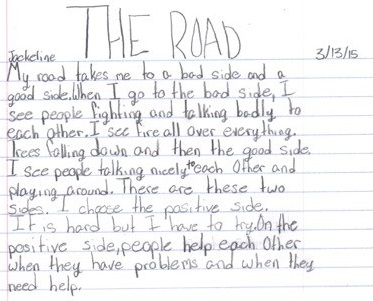 THE ROAD
Jackeline 3/13/15
My road takes me to a bad side and a
good side. When I go to the bad side, I
see people fighting and talking badly to
each other. I see fire all over everything.
Trees falling down and then the good side.
I see people talking nicely to each other and
playing around. There are these two
sides. I choose the positive side.
It is hard but I have to try. On the
positive side, people help each other
when they have problems and when they
need help.